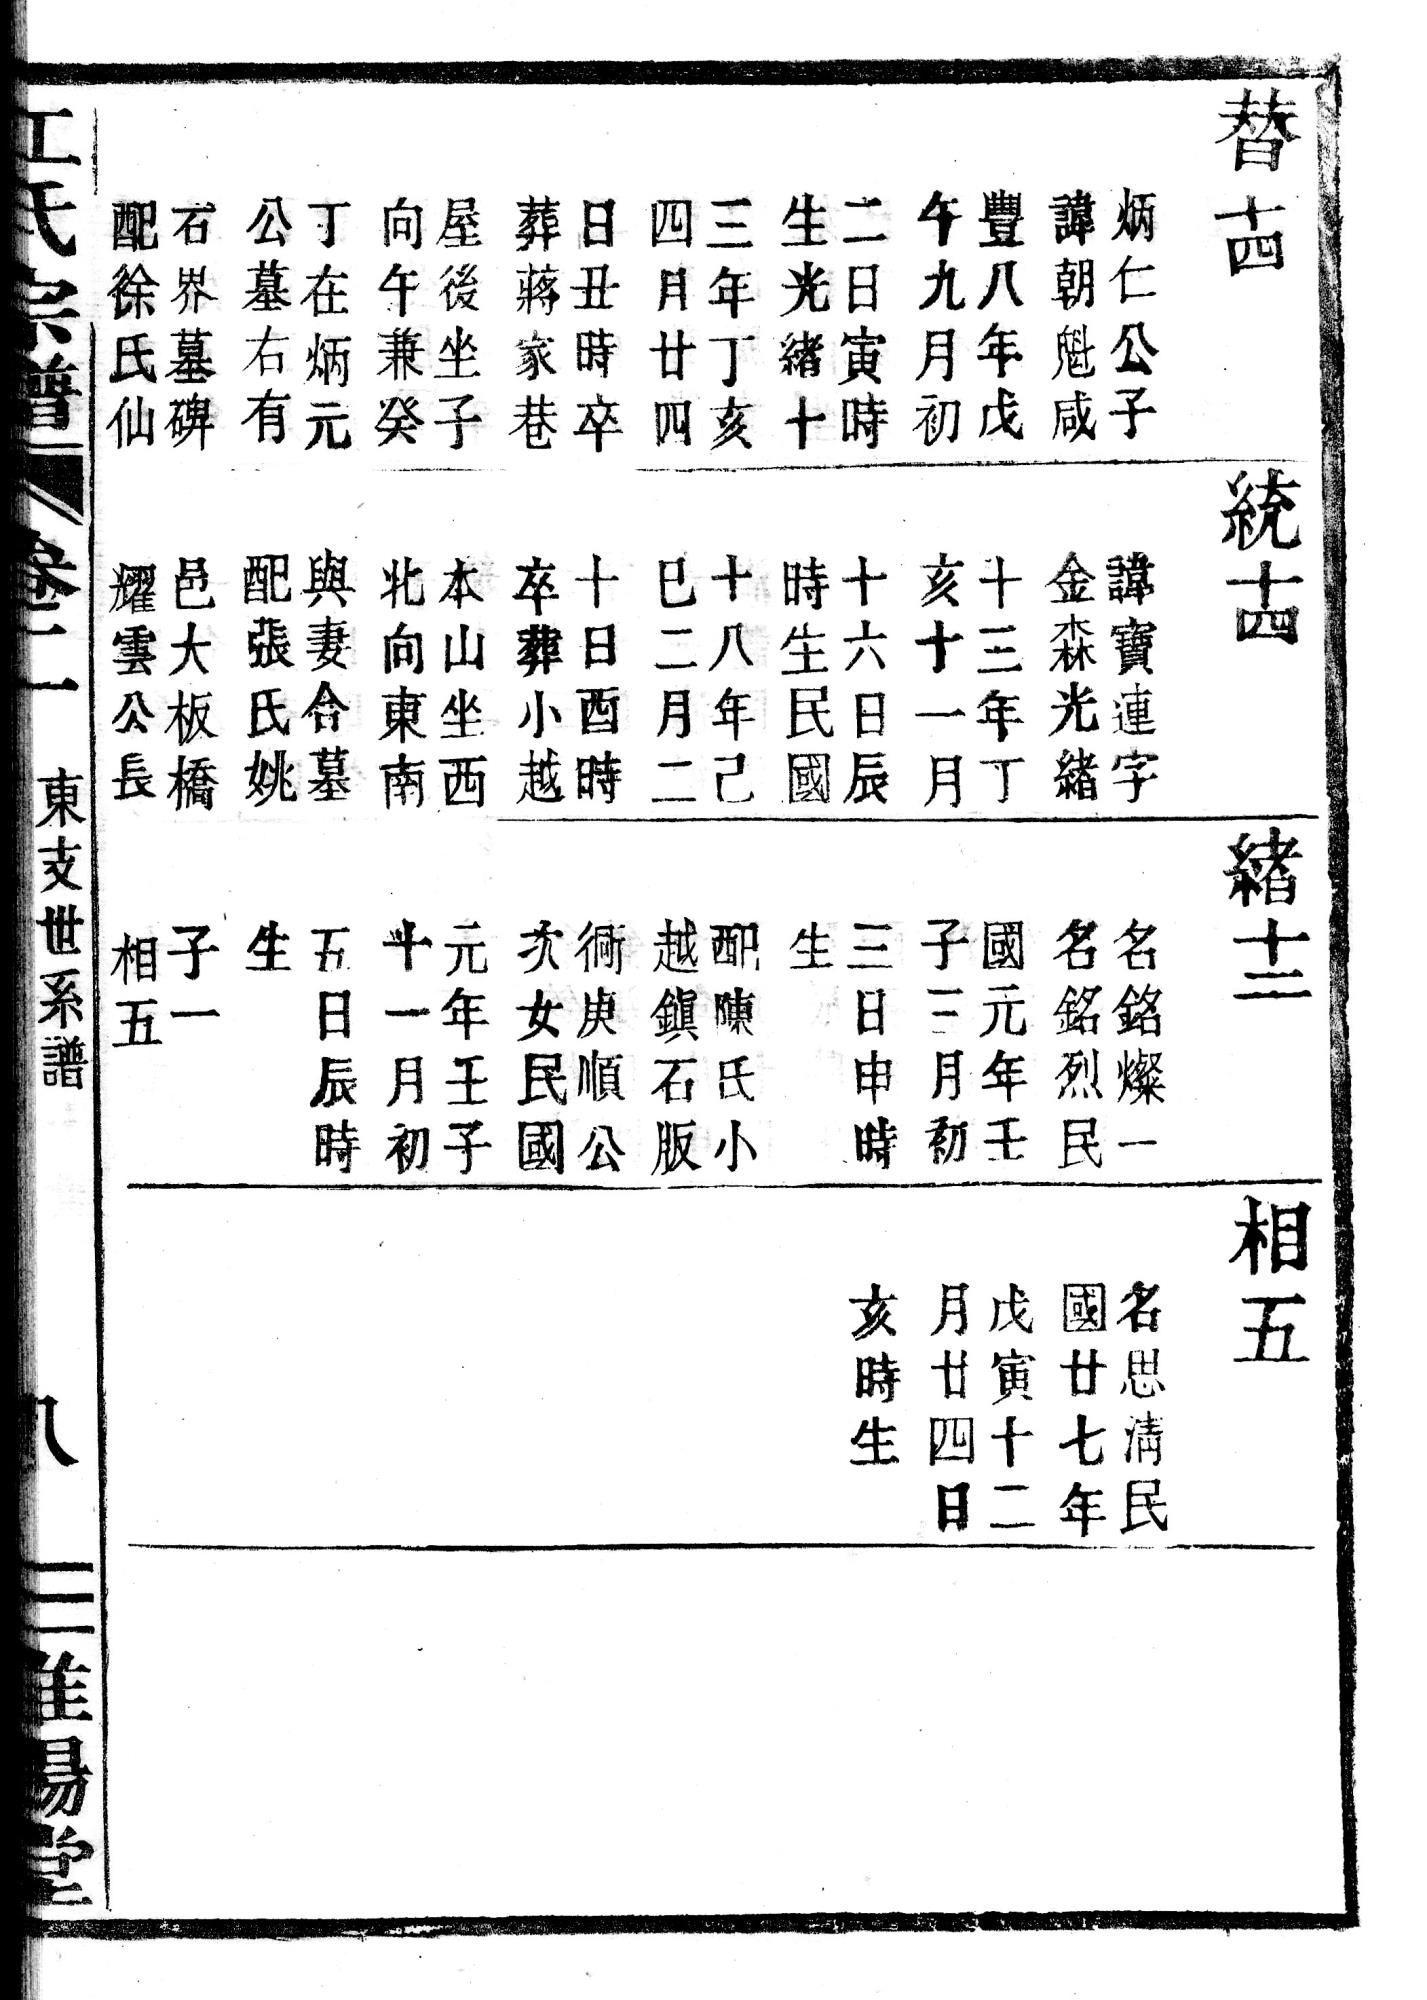 替十四
炳仁公子
諱朝魁咸
豐八年戊
午九月初
二日寅時
生光緒十
三年丁亥
四月廿四
日丑時卒
葬蔣家巷
屋後坐子
向午兼癸
丁在炳元
公墓右有
石界墓碑
配徐氏仙
統十四
諱寶連字
金森光緒
十三年丁
亥十一月
十六日辰
時生民國
十八年己
巳二月二
十日酉時
卒葬小越
本山坐西
北向東南
與妻合墓
配張氏姚
邑大板橋
耀雲公長
緒十二
名銘燦一
名銘烈民
國元年壬
子三月初
三日申時
生
配陳氏小
越鎭石版
衕庚順公
次女民國
元年壬子
十一月初
五日辰時
生
子一
相五
相五
名思淸民
國廿七年
戊寅十二
月廿四日
亥時生
江氏宗譜
卷二一
東支世系譜
八
淮陽堂